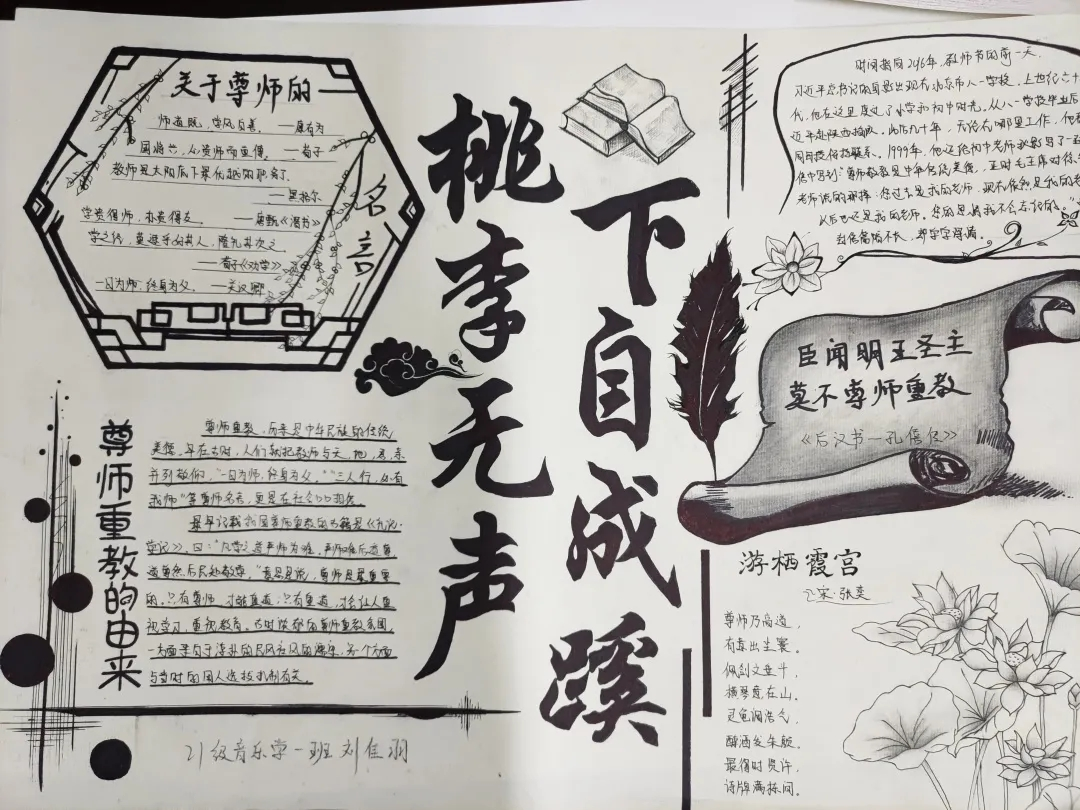 关于尊师的
名言
师道既尊,学风自善。 —康有为
国将兴,必贵师而重傅。 —荀子
教师是太阳底下最优越的职务了
—黑格尔
学贵得师,亦贵得友。 —唐甄《潜书》
学之经,莫速乎好其人,隆礼其次之
—荀子《劝学》
一日为师,终身为父。 —关汉卿
桃李无声
下自成蹊
时间拨回2016年,教师节的前一天,
习近平总书记的身影出现在北京市八一学校,上世纪六十
代,他在这里度过了小学和初中时光。从八一学校毕业后
近平赴陕西插队,此后几十年,无论在哪里工作,他都
同母校保持联系。1999年,他还给初中老师
信中写到"尊师敬贤是中华传统美德,正如毛主席对徐
老师说的那样:您过去是我的老师,现在依然是我的老
以后也还是我的老师,您的恩情我不会忘记的。"
封信篇幅不长,却字字深情。
臣闻明王圣主
莫不尊师重教
《后汉书—孔僖传》
尊师重教的由来
尊师重教,历来是中华民族的传统
美德,早在古时,人们就把教师与天、地、君、亲
并列敬仰,"一日为师,终身为父。""三人行,必有
我师"等尊师名言,更是在社会口口相传
最早记载我国尊师重教的书籍是《礼记·
学记》,曰:"凡学之道严师为难,严师难后道尊
道尊然后民知敬学。"意思是说,尊师是最重要
的,只有尊师,才能重道;只有重道,才会让人重
视学习,重视教育。古时淡漠的尊师重教氛围,
一方面来自于淳朴的民风社风的熏染,另一个方面
与当时的用人选拔机制有关。
游栖霞宫
宋·张奕
尊师乃高道,
有意出尘寰。
佩剑文冲斗,
横琴意在山。
灵龟调浩气,
醇酒发朱颜。
最得时贤许,
诗牌满栋间。
21级音乐学一班刘佳羽